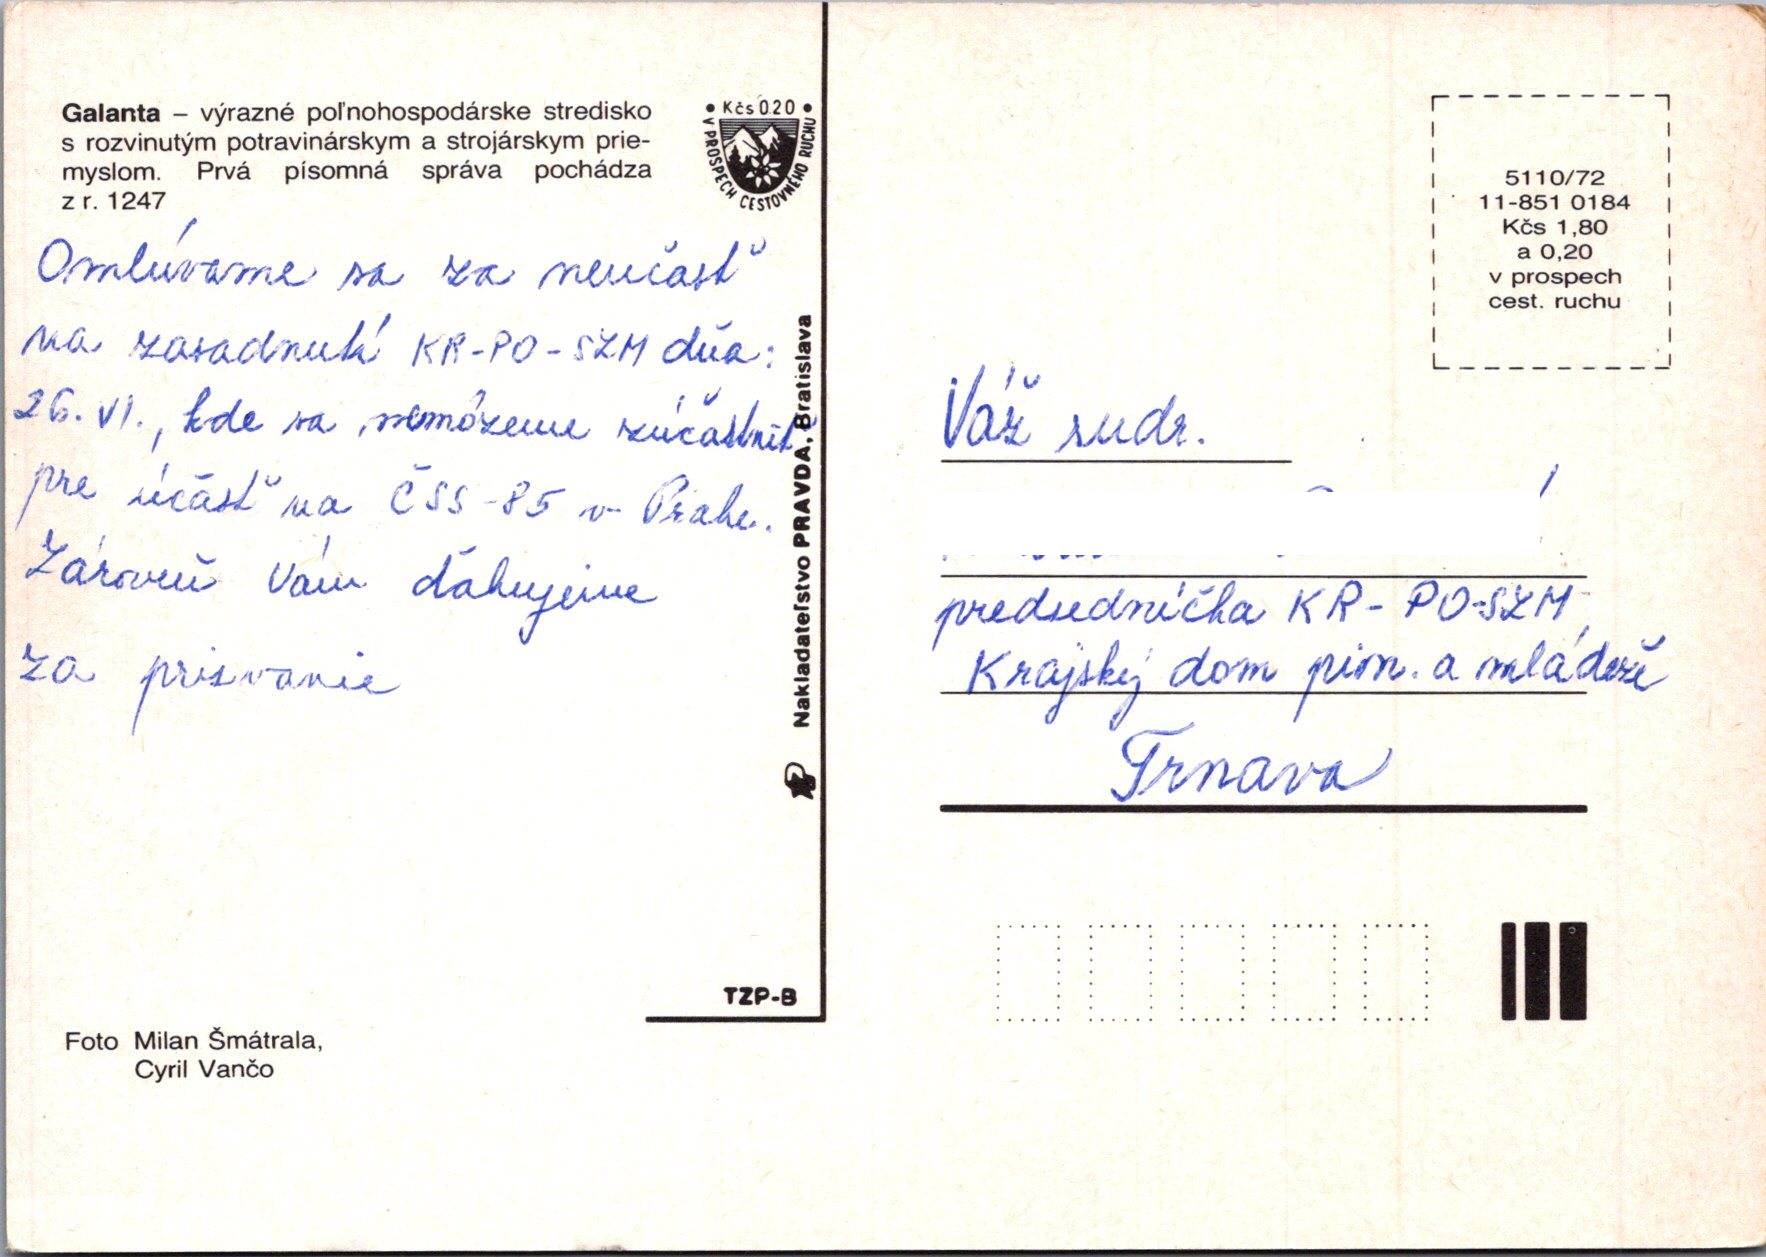 Galanta – výrazné poľnohospodárske stredisko
s rozvinutým potravinárskym a strojárskym prie-
myslom. Prvá písomná správa pochádza
z r. 1247
• Kčs 0.20 •
V PROSPECH CESTOVNÉHO RUCHU
Omlúvame sa za neučasť
na zasadnutí KR-PO-SZM dňa:
26. VI., kde sa nemôzeme zúčastniť
pre účasť na ČSS-85 v Prahe.
Zároveň Vám ďakujeme
za prizvanie
Nakladateľstvo PRAVDA, Bratislava
TZP-B
Foto Milan Šmátrala,
Cyril Vančo
5110/72
11-851 0184
Kčs 1,80
a 0,20
v prospech
cest. ruchu
Váž sudr.
predsedníčka KR-PO-SZM
Krajský dom pion. a mládeže
Trnava